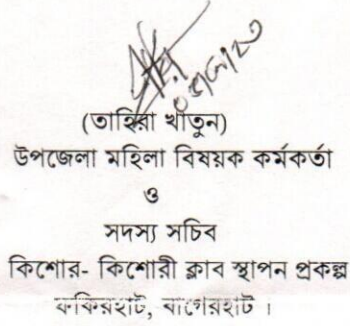 (তাহিরা খাতুন)
উপজেলা মহিলা বিষয়ক কর্মকর্তা
ও
সদস্য সচিব
কিশোর- কিশোরী ক্লাব স্থাপন প্রকল্প
ফকিরহাট, বাগেরহাট ।